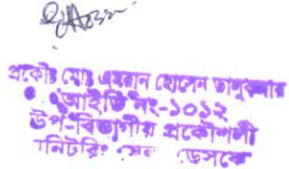 প্রকৌঃ মোঃ এমরান হোসেন তালুকদার
আইডি নং-১০১২
উপ-বিভাগীয় প্রকৌশলী
নিটরিং সেল ডেসকো